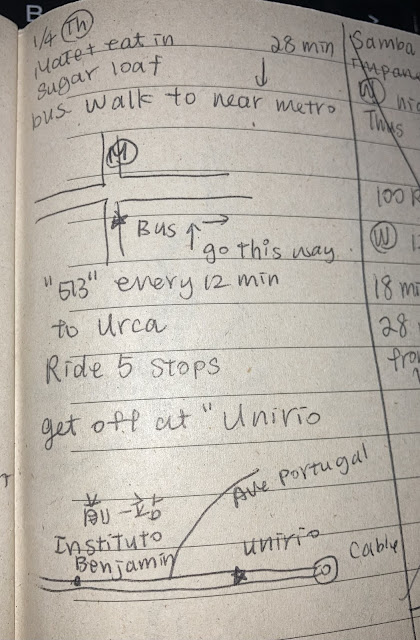 1/4 (Th)
Water eat in 28 min
Sugar loaf
bus walk to near metro
M
BUS
go this way
"513" every 12 min
to Urca
Ride 5 stops
get off at "Unirio
Ave Portugal
Instituto
Benjamin
unirio
Cable
Samba
W
Thus
100
W
18 mi
28
from